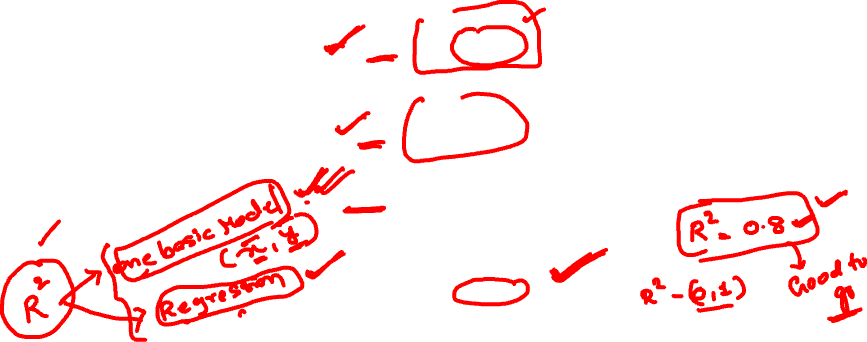 R²
one basic Model
(x, y)
Regression
R² = 0.8
R² - (0,1)
Good to
go